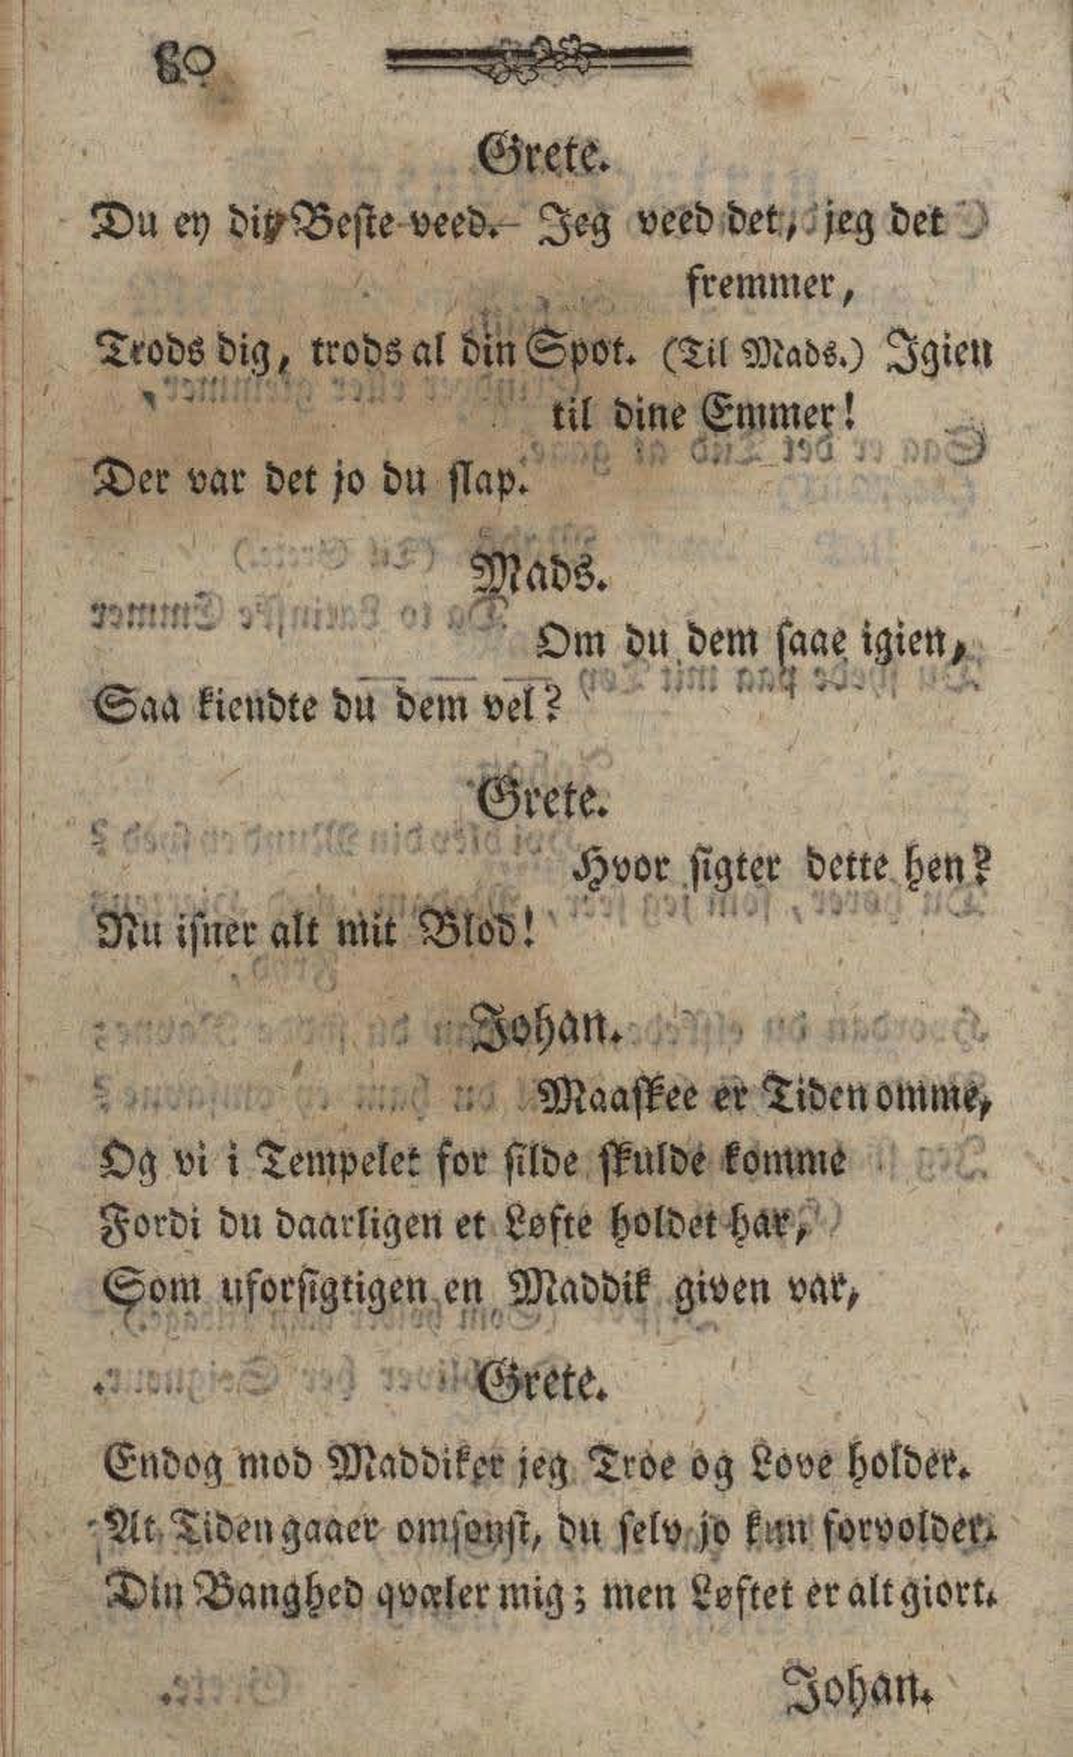 80
Grete.
Du ey dit Beste veed. — Jeg veed det, jeg det
fremmer,
Trods dig, trods al din Spot. (Til Mads.) Igien
til dine Emmer!
Der var det jo du slap.
Mads.
Om du dem saae igien,
Saa kiendte du dem vel?
Grete.
Hvor sigter dette hen?
Nu isner alt mit Blod!
Johan.
Maaskee er Tiden omme,
Og vi i Tempelet for silde skulde komme
Fordi du daarligen et Løfte holdet har,
Som uforsigtigen en Maddik given var,
Grete.
Endog mod Maddiker jeg Troe og Love holder.
At Tiden gaaer omsonst, du selv jo kun forvolder.
Din Banghed qvæler mig; men Løftet er alt giort.
Johan.